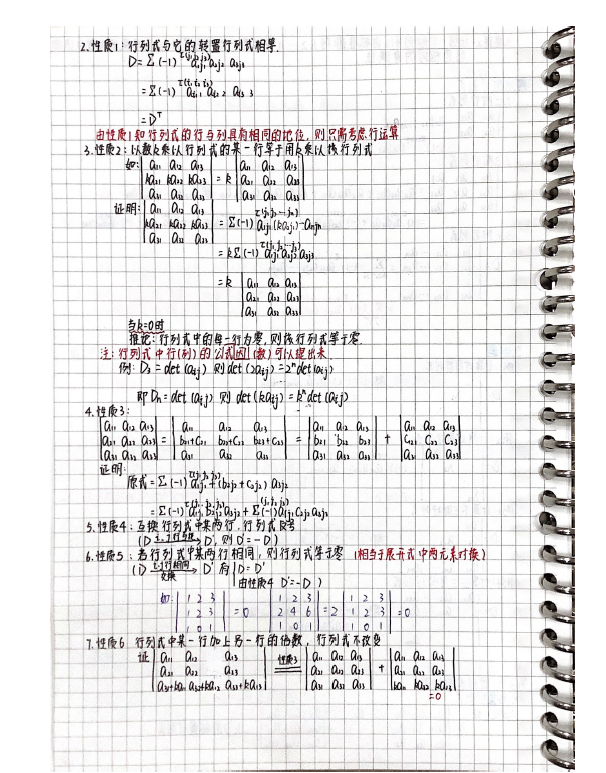 2.性质1:行列式与它的转置行列式相等.
D=Σ(-1)^τ(j₁j₂j₃) a₁j₁ a₂j₂ a₃j₃
=Σ(-1)^τ(i₁ i₂ i₃) aᵢ₁1 aᵢ₂2 aᵢ₃3
=Dᵀ
由性质1知行列式的行与列具有相同的地位,则只需考虑行运算
3.性质2:以数k乘以行列式的某一行等于用k乘以该行列式
如: |a₁₁ a₁₂ a₁₃| |a₁₁ a₁₂ a₁₃|
|ka₂₁ ka₂₂ ka₂₃| = k |a₂₁ a₂₂ a₂₃|
|a₃₁ a₃₂ a₃₃| |a₃₁ a₃₂ a₃₃|
证明: |a₁₁ a₁₂ a₁₃|
|ka₂₁ ka₂₂ ka₂₃| =Σ(-1)^τ(j₁j₂…jₙ) a₁j₁(ka₂j₂)…aₙjₙ
|a₃₁ a₃₂ a₃₃| =kΣ(-1) a₁j₁a₂j₂a₃j₃
=k |a₁₁ a₁₂ a₁₃|
|a₂₁ a₂₂ a₂₃|
|a₃₁ a₃₂ a₃₃|
当k=0时
推论:行列式中的每一行为零,则该行列式等于零.
注:行列式中行(列)的公式因(数)可以提出来.
例: =det(aᵢj) 则det(2aᵢj)=2ⁿdet(aᵢj)
即Dₙ=det(aᵢj) 则det(kaᵢj)=kⁿdet(aᵢj)
4.性质3:
|a₁₁ a₁₂ a₁₃| |a₁₁ a₁₂ a₁₃| |a₁₁ a₁₂ a₁₃| |a₁₁ a₁₂ a₁₃|
|a₂₁ a₂₂ a₂₃| = |b₂₁+c₂₁ b₂₂+c₂₂ b₂₃+c₂₃| = |b₂₁ b₂₂ b₂₃| + |c₂₁ c₂₂ c₂₃|
|a₃₁ a₃₂ a₃₃| |a₃₁ a₃₂ a₃₃| |a₃₁ a₃₂ a₃₃| |a₃₁ a₃₂ a₃₃|
证明:
原式=Σ(-1)^τ(j₁j₂j₃) a₁j₁+(b₂j₂+c₂j₂)a₃j₂
=Σ(-1) a₁j₁b₂j₂a₃j₂+Σ(-1)^(j₁j₂j₃) a₁j₁c₂j₂a₃j₃
5.性质4:互换行列式中某两行,行列式反号
(D i,j行互换→ D',则D'=-D)
6.性质5:若行列式中某两行相同,则行列式等于零 (相当于展开式中两元素对换)
(D i,j行相同 交换→ D' 有 D=D'
由性质4 D'=-D)
如: |1 2 3| |1 2 3| |1 2 3|
|1 2 3| =0 |2 4 6| =2 |1 2 3| =0
|1 0 1| |1 0 1| |1 0 1|
7.性质6 行列式中某一行加上另一行的倍数,行列式不改变
证 |a₁₁ a₁₂ a₁₃| 性质3 |a₁₁ a₁₂ a₁₃| |a₁₁ a₁₂ a₁₃|
|a₂₁ a₂₂ a₂₃| = |a₂₁ a₂₂ a₂₃| + |a₂₁ a₂₂ a₂₃|
|a₃₁+ka₁₁ a₃₂+ka₁₂ a₃₃+ka₁₃| |a₃₁ a₃₂ a₃₃| |ka₁₁ ka₁₂ ka₁₃|
=0